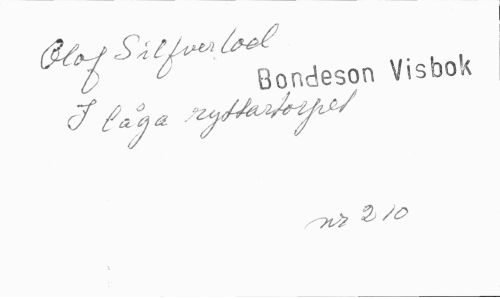 Olof Silfverlod
Bondeson Visbok
I låga ryttartorpet
nr 210